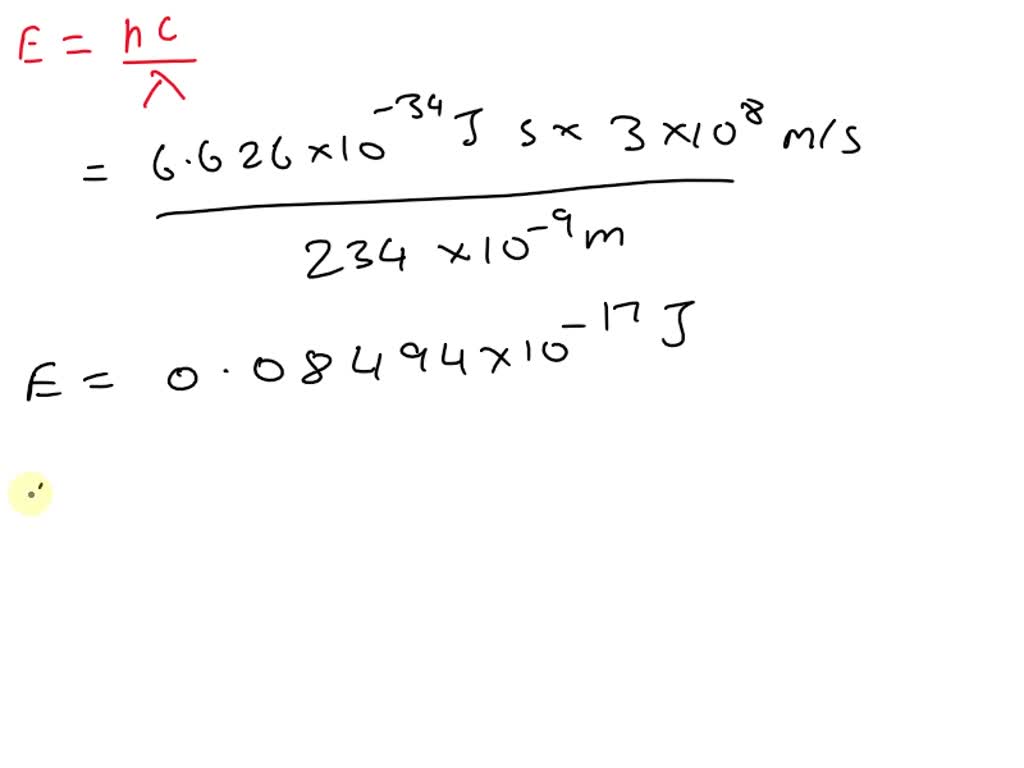 E = hc/λ
= 6.626×10⁻³⁴ J s × 3×10⁸ m/s / 234×10⁻⁹ m
E = 0.08494×10⁻¹⁷ J